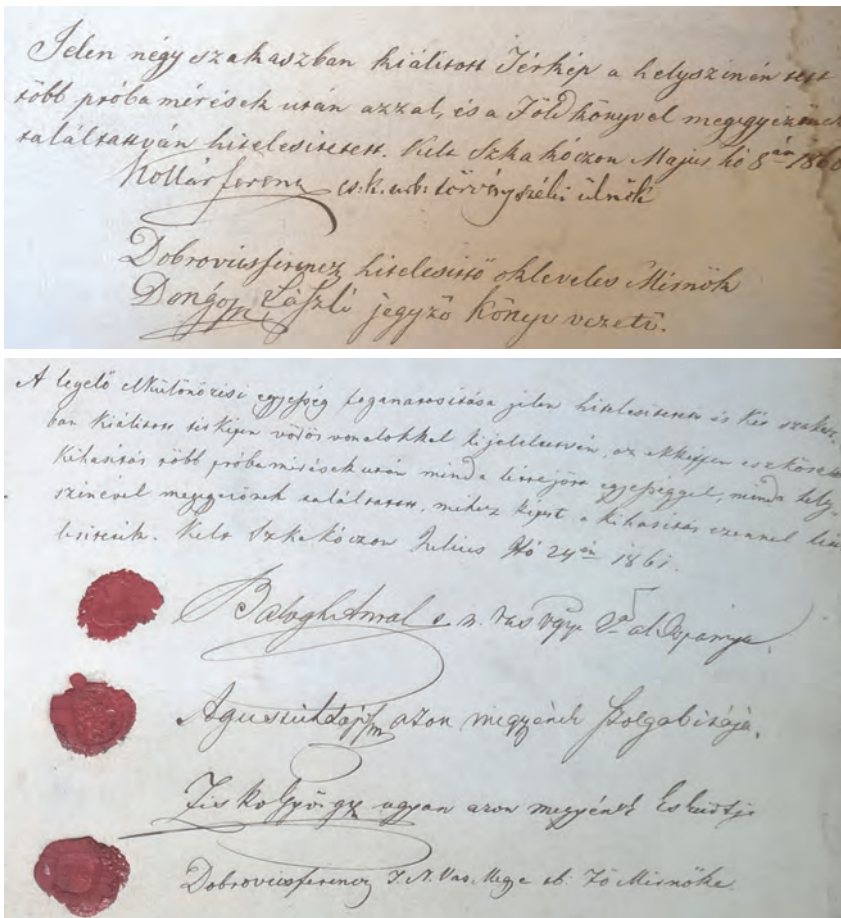 Jelen négy szakaszban kiálitott Térkép a helyszinén tett
több próba mérések után azzal, és a Földkönyvel megegyezőnek
találtatván hitelesitetett. Kelt Szkakóczon Május hó 8án 1860
Kollár ferenc cs: k. urb: törvényszéki ülnök
Dobrovits ferencz hitelesittő okleveles Mérnök
László jegyző könyv vezető.
A legelő elkülönözési egyesség foganatositása jelen hitelesitetett és két szakasz-
ban kiálitott térképen vörös vonalokkal kijeleltetvén, az ekképpen eszközlött
Kihasitás több próba mérések után mind a létrejött egyességgel, mind a hely-
szinével megegyezőnek találtatott, mihez képest a kihasitás ezennel
hitesitetik. Kelt Szkakóczon Julius Hó 24én 1861.
Balogh Antal t. n. Vas Vgye al Ispánja.
Agustich azon megyének szolgabirája.
Zisko György ugyan azon megyének Esküdtje
Dobrovits ferencz T. N. Vas. Megye rb: Fő Mérnöke.